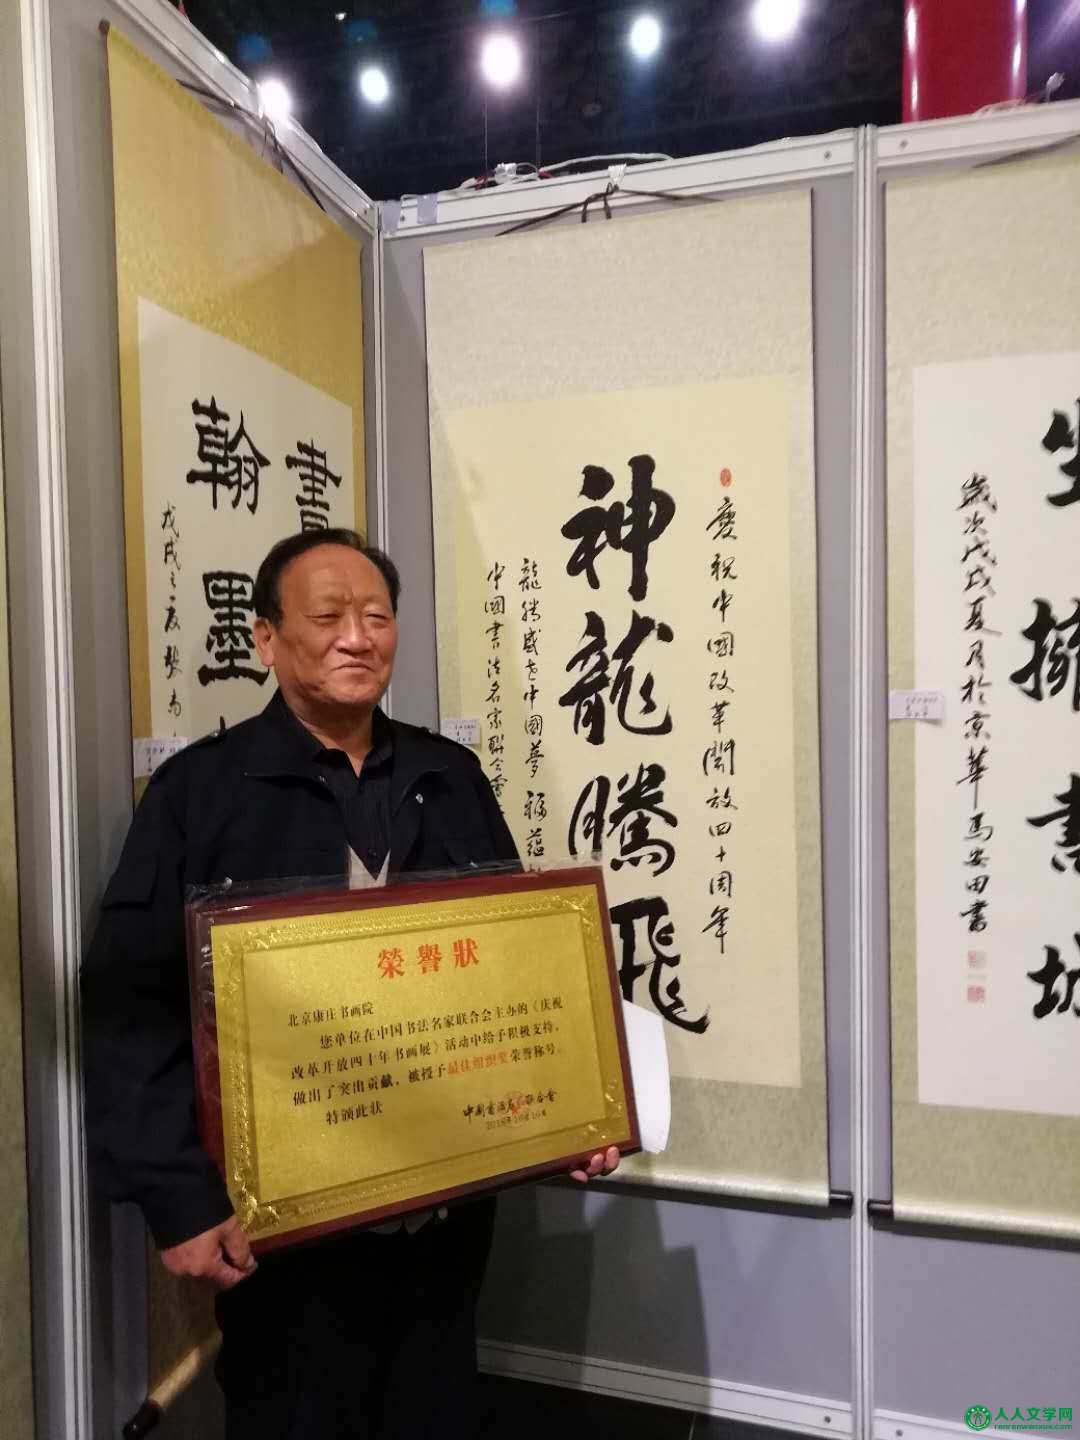 書
翰墨
戊戌之夏
慶祝中國改革開放四十周年
神龍騰飛
龍騰盛世中國夢 福蘊
中國書法名家聯合會
坐擁書城
歲次戊戌夏月於京華馬安田書
榮譽狀
北京康庄书画院
您单位在中国书法名家联合会主办的《庆祝
改革开放四十年书画展》活动中给予积极支持，
做出了突出贡献，被授予最佳组织奖荣誉称号。
特颁此状
中国书法名家联合会
人人文学网
renrenwenxue.com